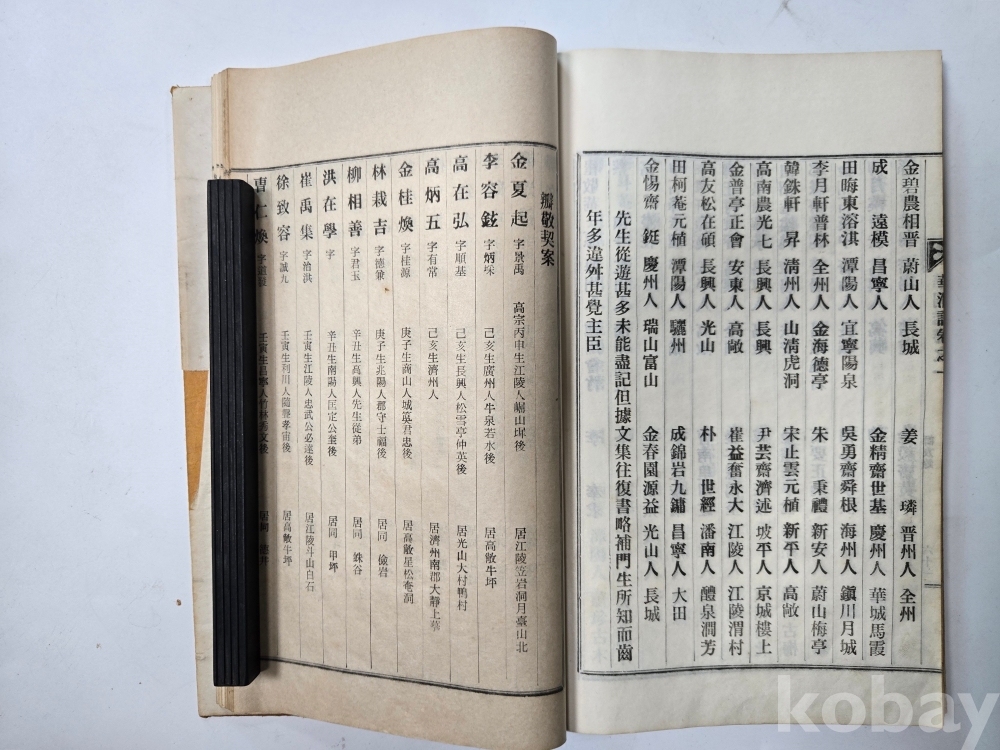 金碧農相晋 蔚山人 長城 姜 璘 晋州人 全州
成 遠模 昌寧人 金精齋世基 慶州人 華城馬霞
田晦東溶淇 潭陽人 宜寧陽泉 吳勇齋舜根 海州人 鎭川月城
李月軒普林 全州人 金海德亭 朱 秉禮 新安人 蔚山梅亭
韓銖軒 昇 淸州人 山淸虎洞 宋止雲元植 新平人 高敞
高南農光七 長興人 長興 尹芸齋濟述 坡平人 京城樓上
金普亭正會 安東人 高敞 崔益奮永大 江陵人 江陵渭村
高友松在碩 長興人 光山 朴 世經 潘南人 醴泉潤芳
田柯菴元植 潭陽人 驪州 成錦岩九鏞 昌寧人 大田
金惕齋 鋌 慶州人 瑞山富山 金春園源益 光山人 長城
先生從遊甚多未能盡記但據文集往復書略補門生所知而齒
年多違舛甚覺主臣
瓣敬契案
金夏起 字景禹 高宗丙申生江陵人嵋山後 居江陵笠岩洞月臺山北
李容鉉 字炳埰 己亥生廣州人牛泉若水後 居高敞牛坪
高在弘 字順基 己亥生長興人松雪亭仲英後 居光山大村鴨村
高炳五 字有常 己亥生濟州人 居濟州南郡大靜上摹
金桂煥 字桂源 庚子生商山人城英君忠後 居高敞星松菴洞
林栽吉 字德兼 庚子生兆陽人郡守士福後 居同 儉岩
柳相善 字君玉 辛丑生高興人先生從弟 居同 蛛谷
洪在學 字 辛丑生南陽人匡定公奎後 居同 甲坪
崔禹集 字洽洪 壬寅生江陵人忠武公必達後 居江陵斗山白石
徐致容 字誠九 壬寅生利川人隨龔孝宙後 居高敞牛坪
曺仁煥 壬寅生昌寧人 居同